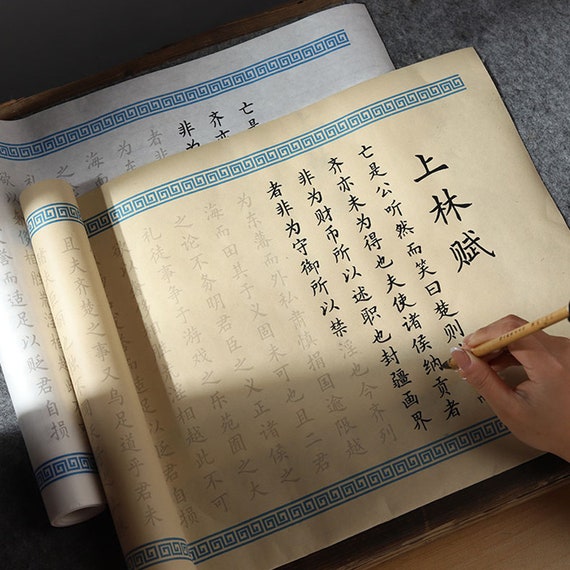 上林赋
亡是公听然而笑曰楚则
齐亦未为得也夫使诸侯纳贡者
非为财币所以述职也封疆画界
者非为守御所以禁淫也今齐列
为东藩而外私肃慎捐国逾限越
海而田其于义固未可也且二君
之论不务明君臣之义正诸侯之
礼徒事争于游戏之乐苑囿之大
淫相越此不可
自损
且夫齐楚之事又乌足道乎君未
亡是
齐亦
非为
者非
为东
海而
之
誉而适足以贬君自损